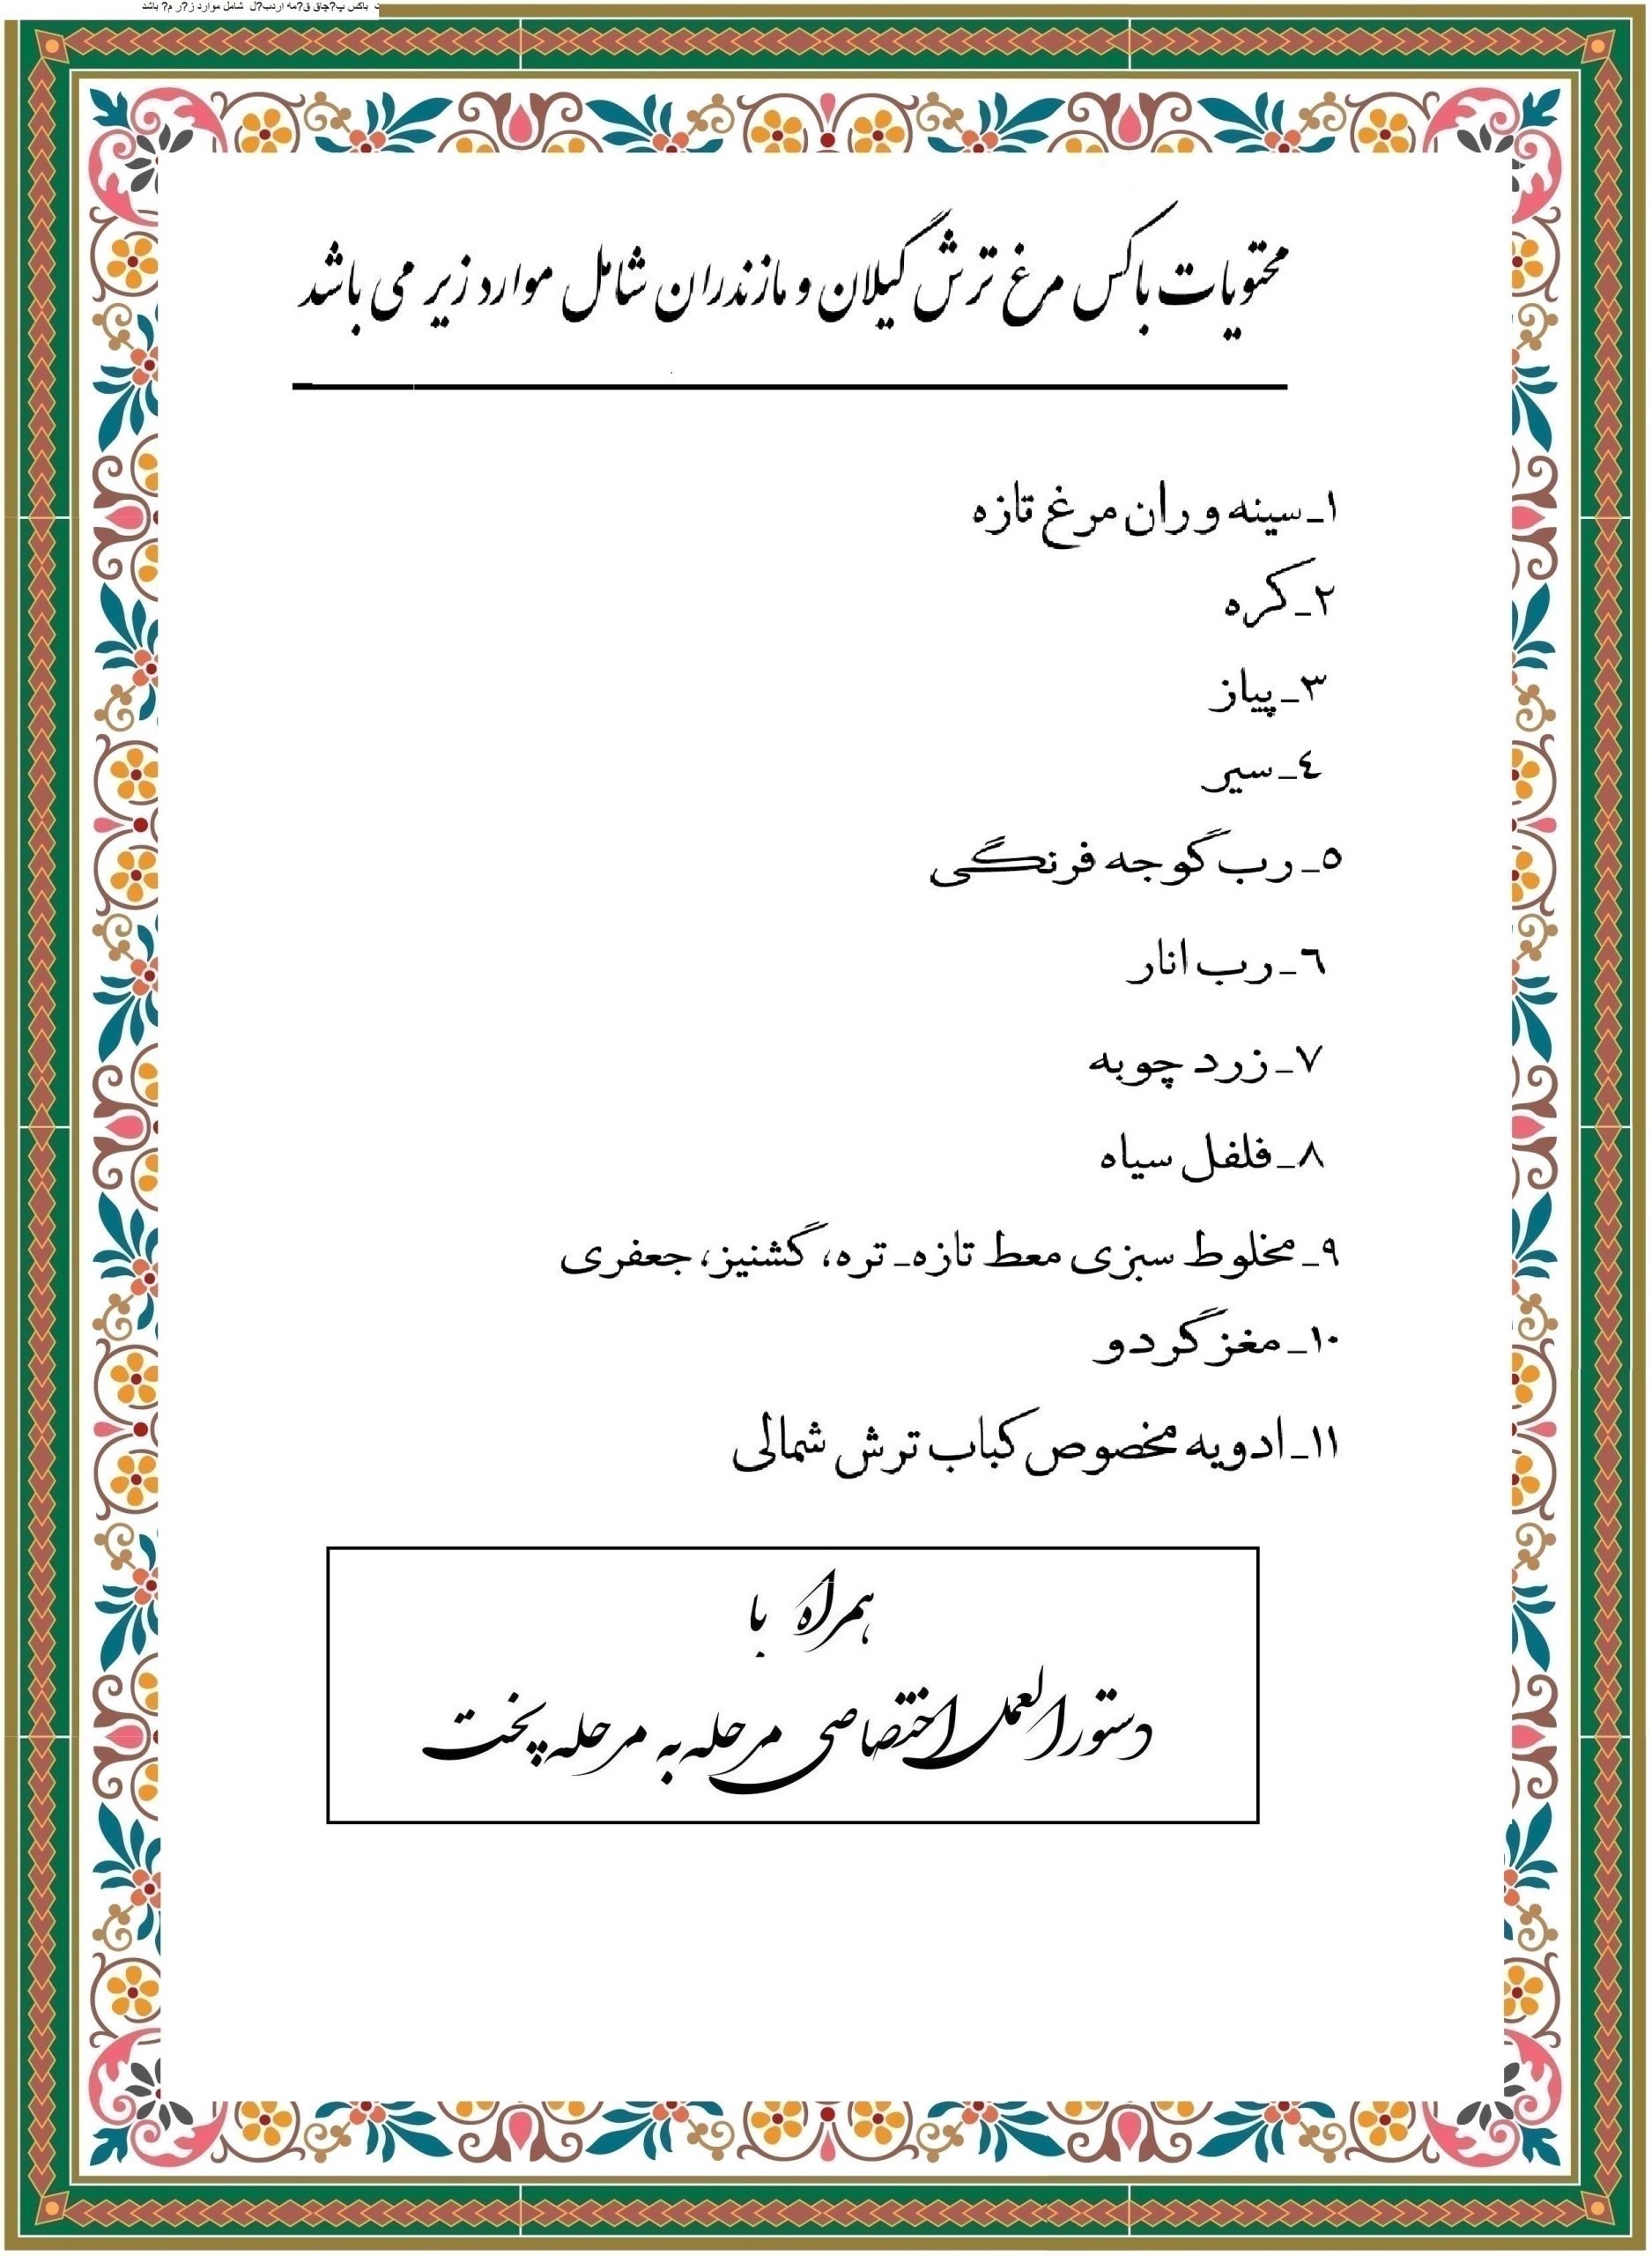 باکس پ?چاق ق?مه اردب?ل شامل موارد ز?ر م? باشد
محتویات باکس مرغ ترش گیلان و مازندران شامل موارد زیر می باشد
١ـ سینه و ران مرغ تازه
٢ـ کره
٣ـ پیاز
٤ـ سیر
٥ـ رب گوجه فرنگی
٦ـ رب انار
٧ـ زرد چوبه
٨ـ فلفل سیاه
٩ـ مخلوط سبزی معط تازه ـ تره، گشنیز، جعفری
١٠ـ مغز گردو
١١ـ ادویه مخصوص کباب ترش شمالی
همراه با
دستورالعمل اختصاصی مرحله به مرحله پخت